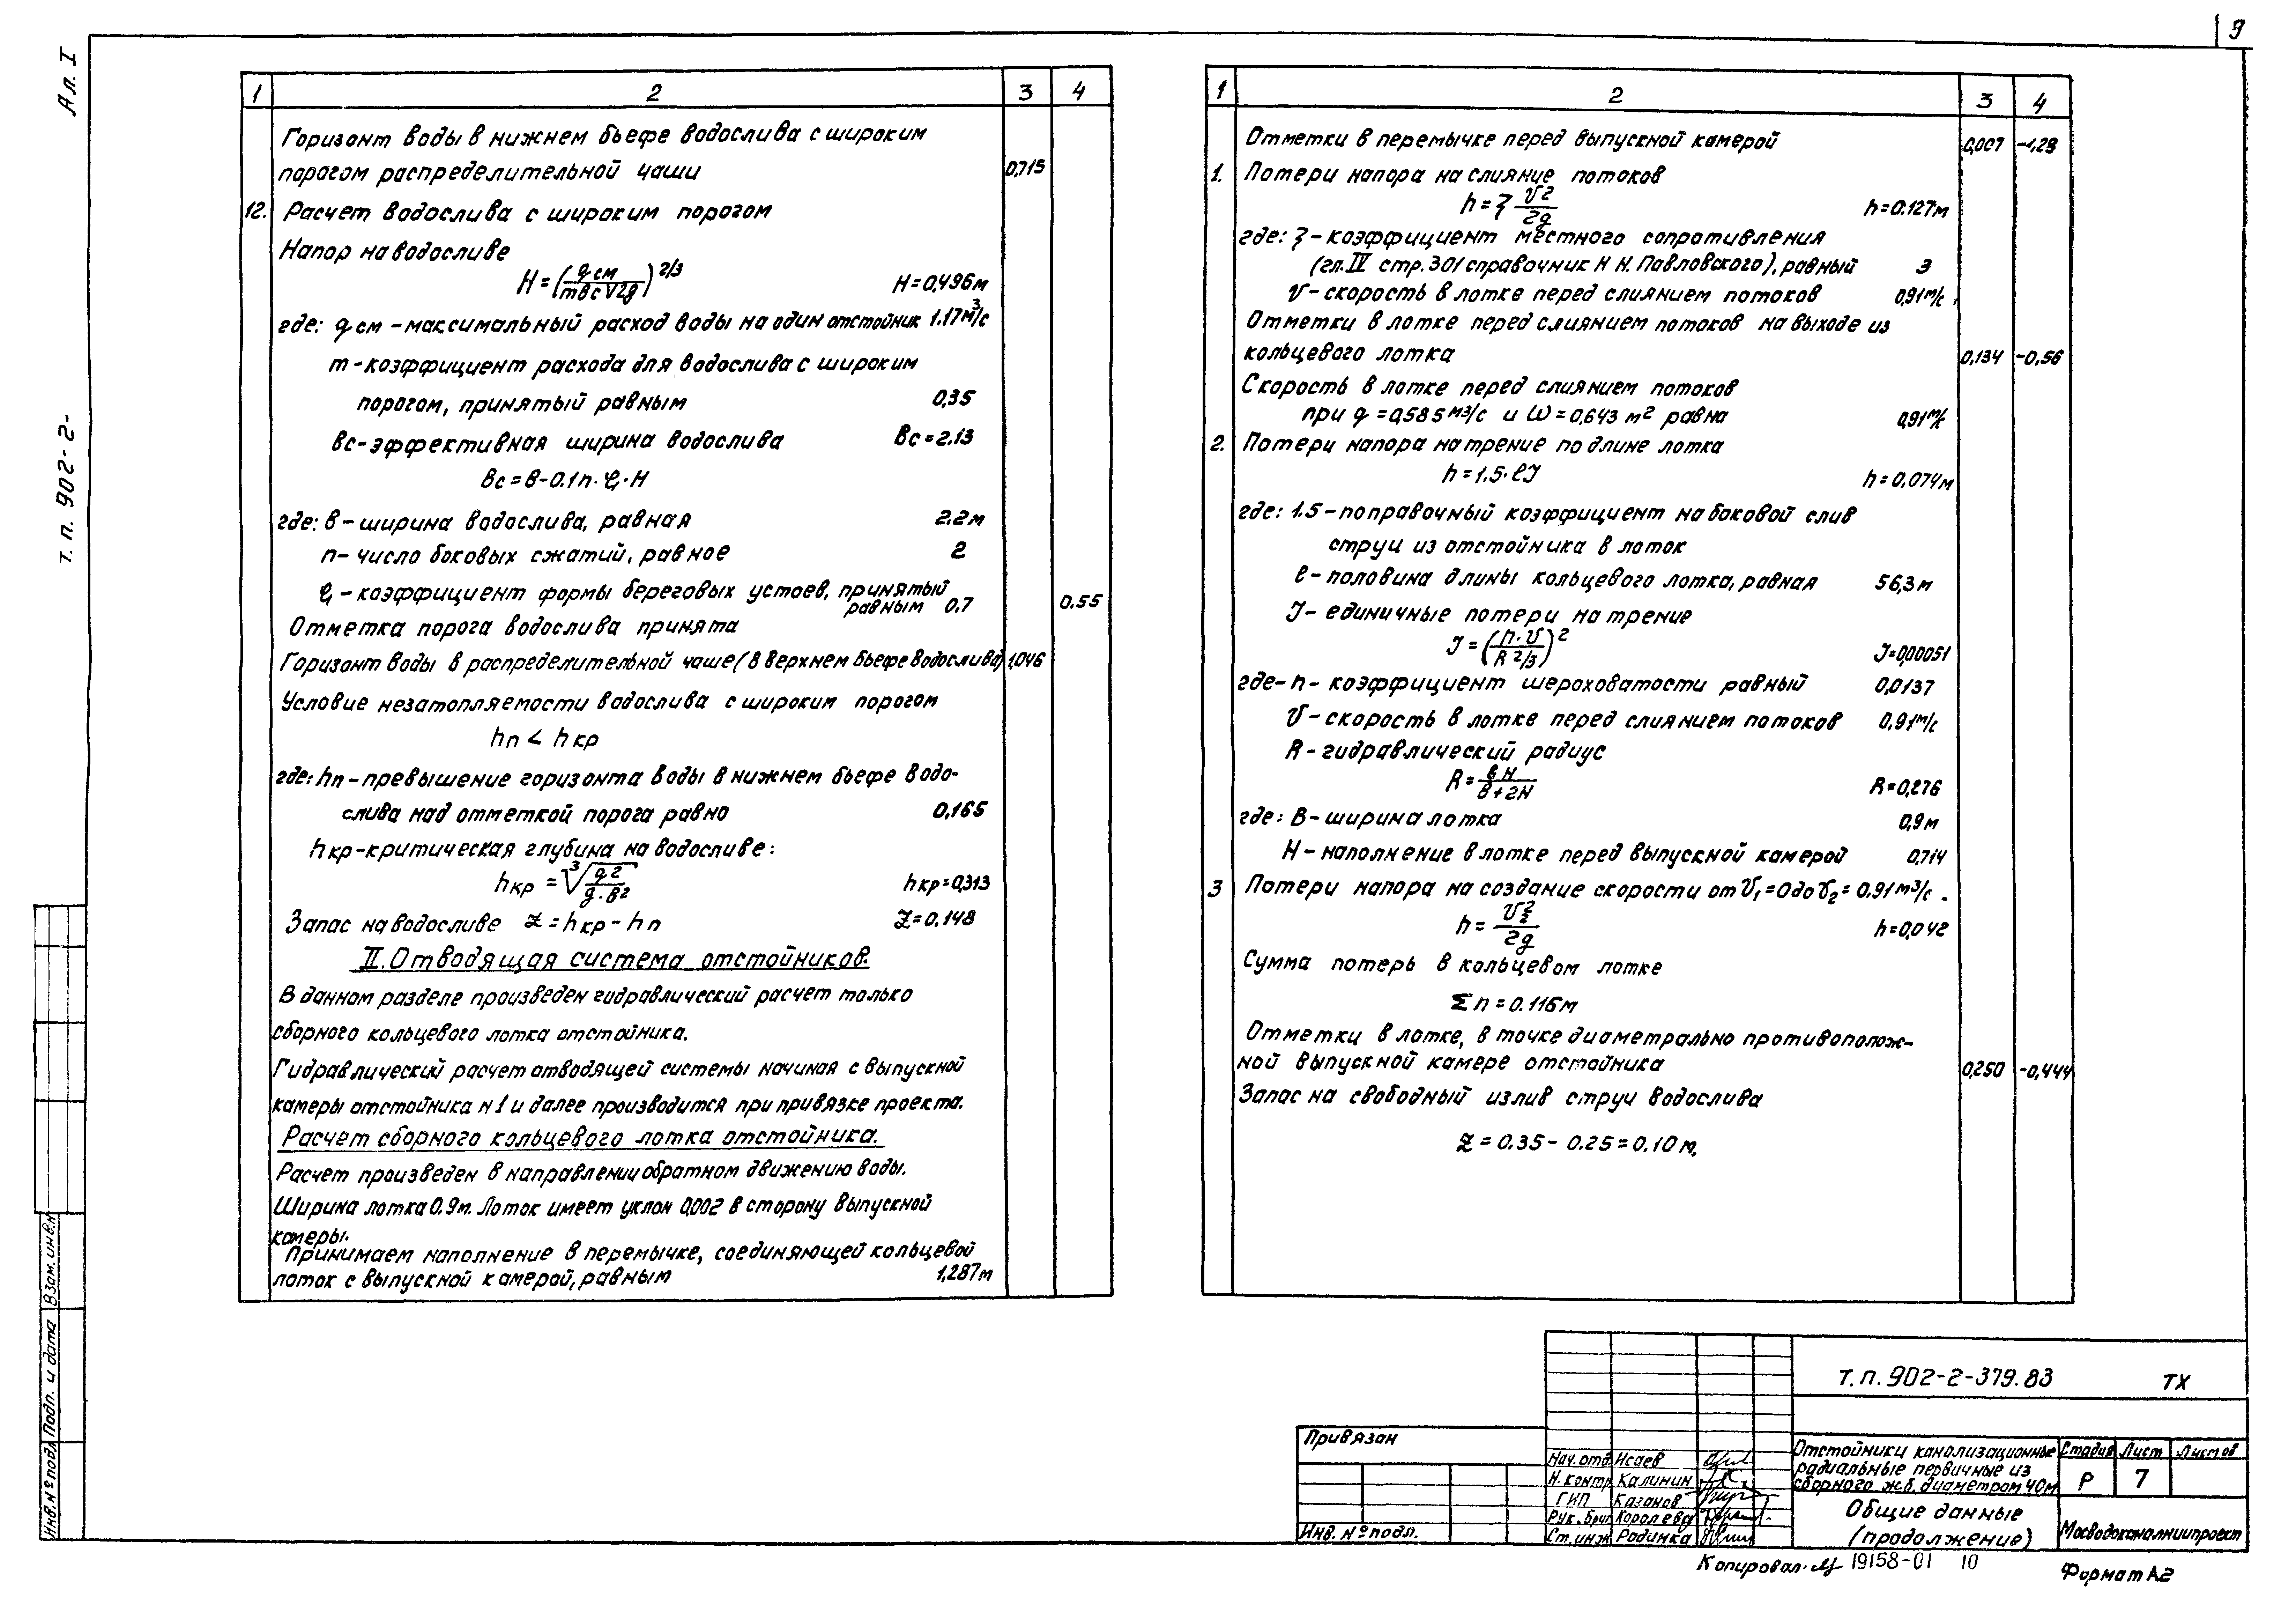 9
Ал. I
т. п. 902-2-
1 2 3 4
Горизонт воды в нижнем бьефе водослива с широким
порогом распределительной чаши 0,715
12. Расчет водослива с широким порогом
Напор на водосливе
H=(qсм/mвс√2g)^2/3 H=0,496м
где: qсм-максимальный расход воды на один отстойник 1.17м³/с
m-коэффициент расхода для водослива с широким
порогом, принятый равным 0,35
вс-эффективная ширина водослива Вс=2.13
Вс=в-0.1п·ξ₁·Н
где: в-ширина водослива, равная 2.2м
п-число боковых сжатий, равное 2
ξ₁-коэффициент формы береговых устоев, принятый
равным 0.7 0.55
Отметка порога водослива принята
Горизонт воды в распределительной чаше (в верхнем бьефе водослива) 1,046
Условие незатопляемости водослива с широким порогом
hп < hкр
где: hп-превышение горизонта воды в нижнем бьефе водо-
слива над отметкой порога равно 0,165
hкр-критическая глубина на водосливе:
hкр=³√q²/g·в² hкр=0,313
Запас на водосливе Z=hкр-hп Z=0.148
II. Отводящая система отстойников.
В данном разделе произведен гидравлический расчет только
сборного кольцевого лотка отстойника.
Гидравлический расчет отводящей системы начиная с выпускной
камеры отстойника н 1 и далее производится при привязке проекта.
Расчет сборного кольцевого лотка отстойника.
Расчет произведен в направлении обратном движению воды.
Ширина лотка 0.9м. Лоток имеет уклон 0,002 в сторону выпускной
камеры.
Принимаем наполнение в перемычке, соединяющей кольцевой
лоток с выпускной камерой, равным 1,287м
1 2 3 4
Отметки в перемычке перед выпускной камерой 0,007 -1,28
1. Потери напора на слияние потоков
h=ξ v²/2g h=0.127м
где: ξ-коэффициент местного сопротивления
(гл. IV стр. 301 справочник Н Н. Павловского), равный 3
v-скорость в лотке перед слиянием потоков 0,91м/с
Отметки в лотке перед слиянием потоков на выходе из
кольцевого лотка 0,134 -0,56
Скорость в лотке перед слиянием потоков
при q=0,585м3/с и ω=0,643 м² равна 0,91м/с
2. Потери напора на трение по длине лотка
h=1.5·ℓJ h=0,074м
где: 1.5-поправочный коэффициент на боковой слив
струи из отстойника в лоток
ℓ-половина длины кольцевого лотка, равная 56,3м
J-единичные потери на трение
J=(n·v/R^2/3)² J=0,00051
где-n-коэффициент шероховатости равный 0,0137
v-скорость в лотке перед слиянием потоков 0,91м/с
R-гидравлический радиус
R=вН/в+2Н R=0,276
где: В-ширина лотка 0,9м
Н-наполнение в лотке перед выпускной камерой 0,714
3 Потери напора на создание скорости от v₁=0 до v₂=0.91м3/с.
h=v₂²/2g h=0,042
Сумма потерь в кольцевом лотке
Σh=0.116м
Отметки в лотке, в точке диаметрально противополож-
ной выпускной камере отстойника 0,250 -0,444
Запас на свободный излив струи водослива
Z=0.35-0.25=0.10м.
Инв. № подл. Подп. и дата Взам. инв. н
Привязан
Инв. № подл.
Нач. отд Исаев
Н. контр. Калинин
ГИП Казанов
Рук. бриг Королева
Ст. инж Родинка
т. п. 902-2-379.83 ТХ
Отстойники канализационные
радиальные первичные из
сборного ж.б. диаметром 40м
Стадия Лист Листов
Р 7
Общие данные
(продолжение)
Мосводоканалниипроект
Копировал. 19158-01 10
Формат А2